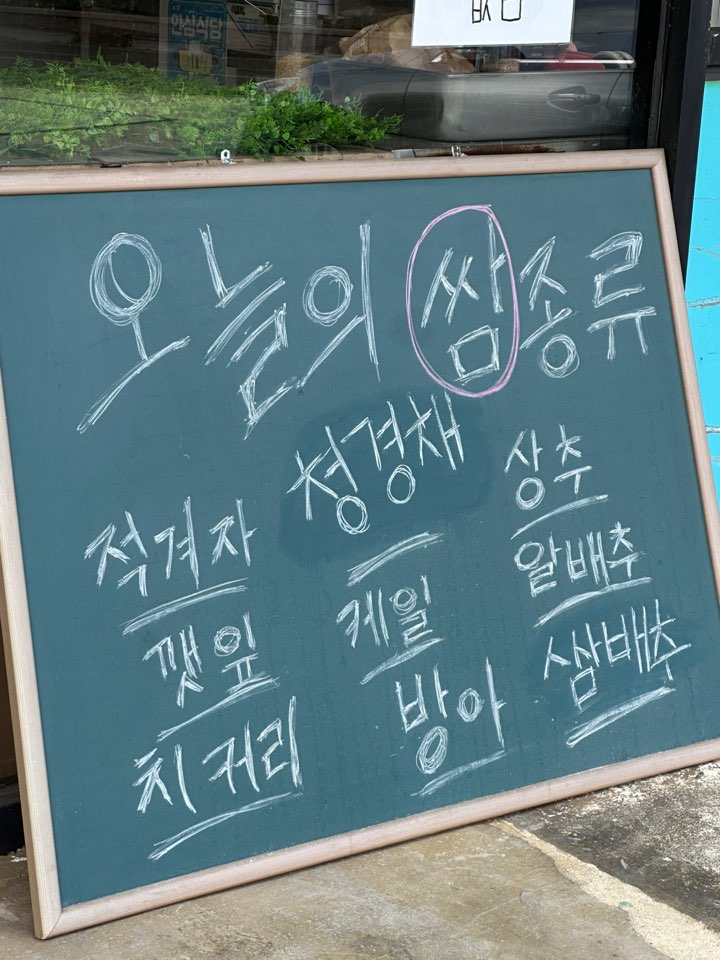 안심식당
오늘의 쌈 종류
청경채
상추
적겨자
알배추
케일
깻잎
쌈배추
방아
치커리